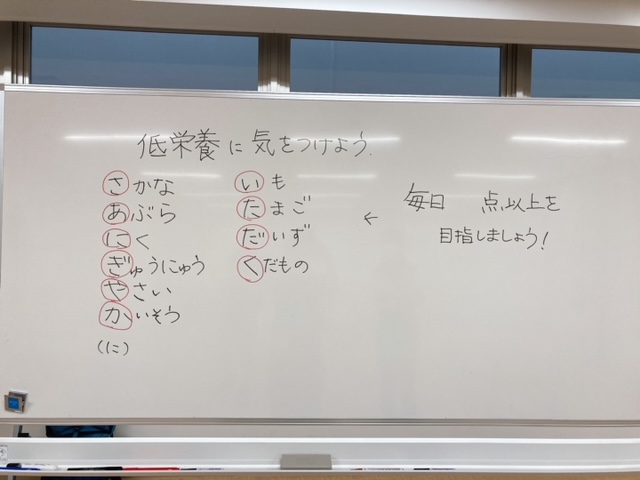 低栄養に気をつけよう.
さかな
あぶら
にく
ぎゅうにゅう
やさい
かいそう
(に)
いも
たまご
だいず
くだもの
← 毎日 点以上を
目指しましょう!